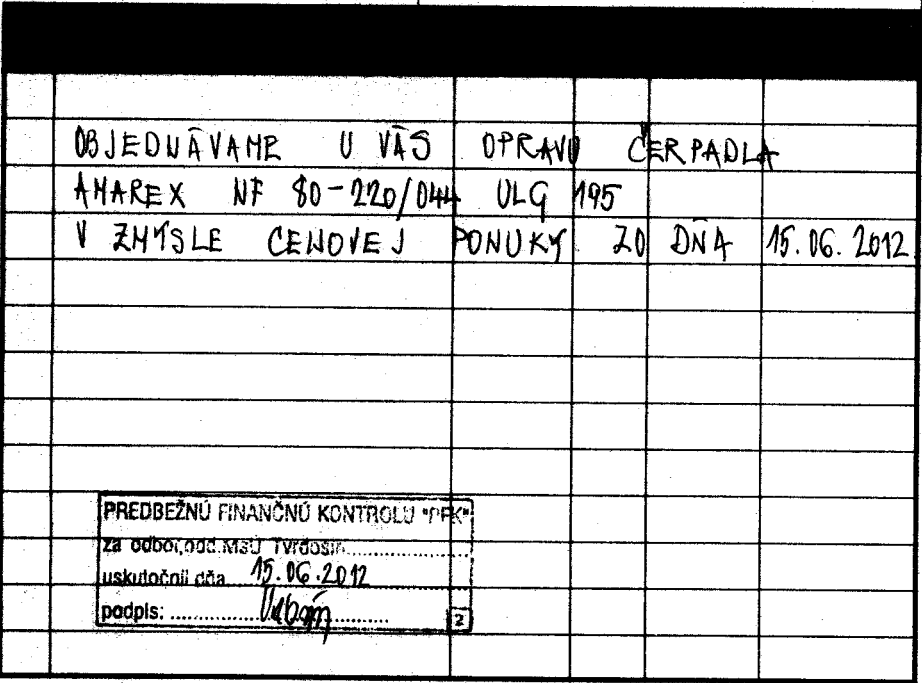 OBJEDNÁVAME U VÁS OPRAVU ČERPADLA
AMAREX NF 80-220/044 ULG 195
V ZMYSLE CENOVEJ PONUKY ZO DŇA 15.06.2012
PREDBEŽNÚ FINANČNÚ KONTROLU "PFK"
za odbor,odd.MsÚ Tvrdošín
uskutočnil dňa 15.06.2012
podpis:
2